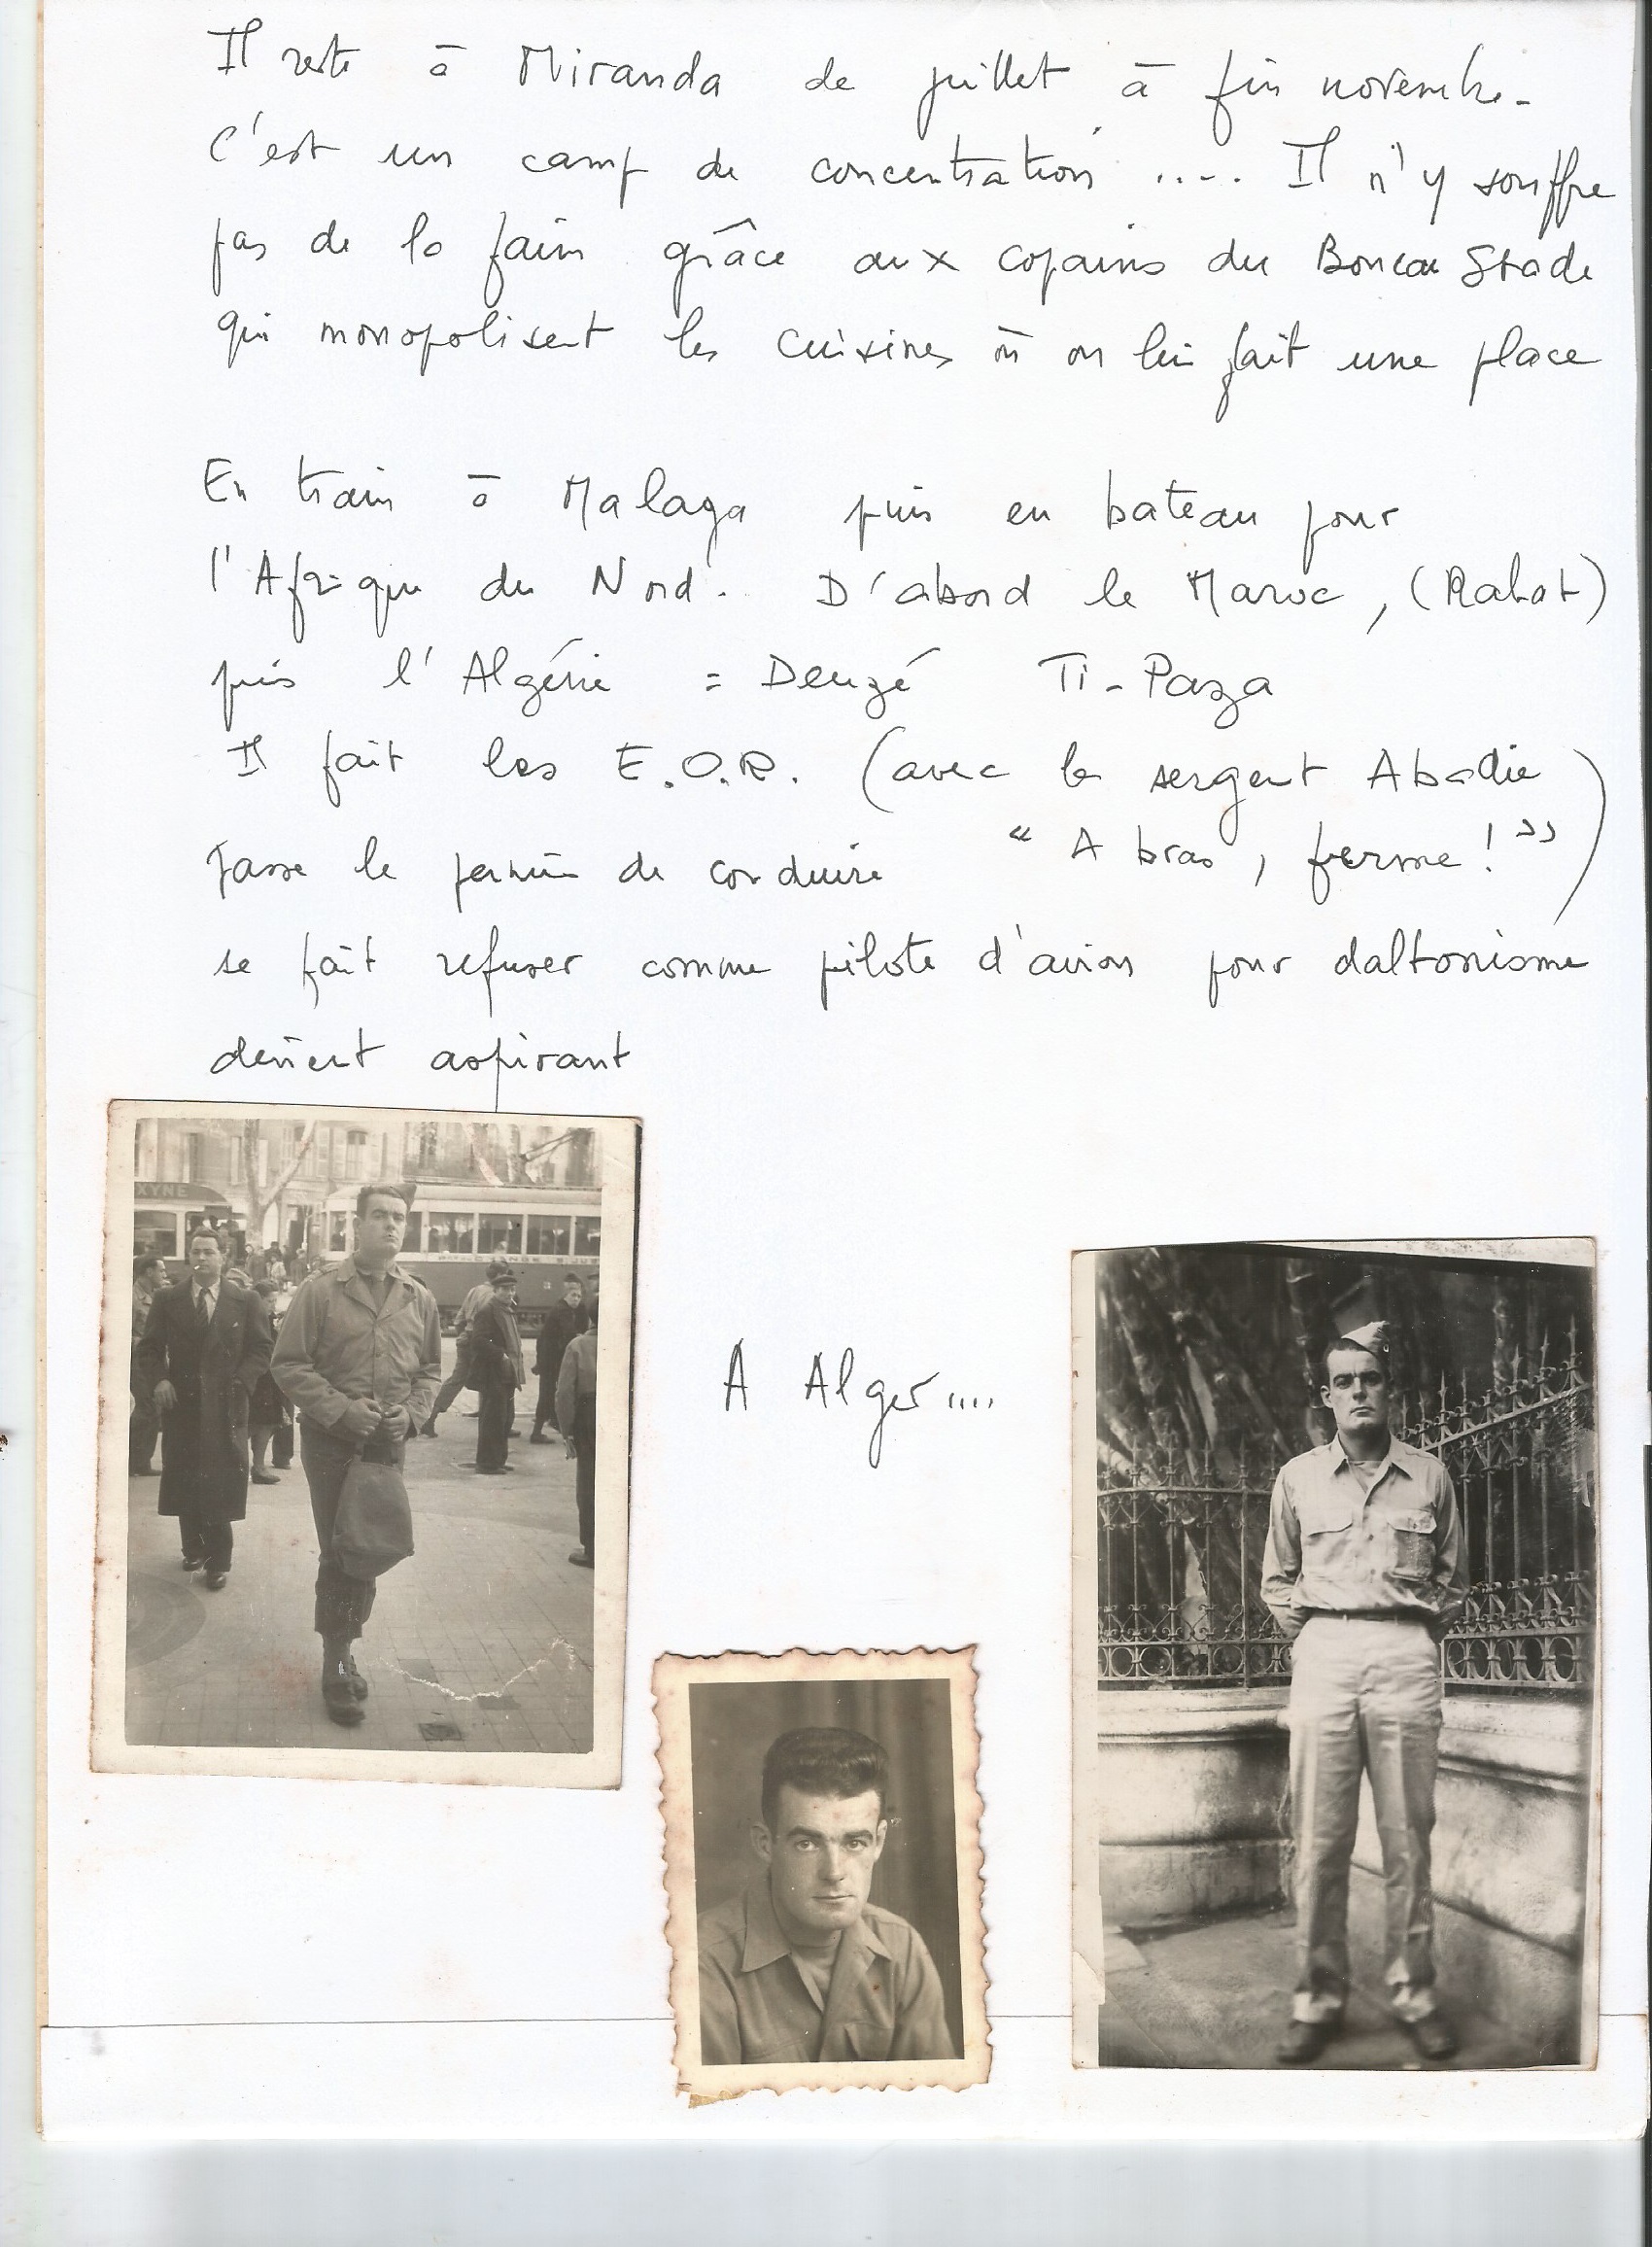 Il reste à Miranda de juillet à fin novembre.
C'est un camp de concentration .... Il n'y souffre
pas de la faim grâce aux copains du Boucau Stade
qui monopolisent les cuisines où on lui fait une place
En train à Malaga puis en bateau pour
l'Afrique du Nord. D'abord le Maroc, (Rabat)
puis l'Algérie : Ti-Paza
Il fait les E.O.R. (avec le sergent Abadie
"A bras, ferme!")
Passe le permis de conduire
se fait refuser comme pilote d'avion pour daltonisme
devient aspirant
XYNE
A Alger....